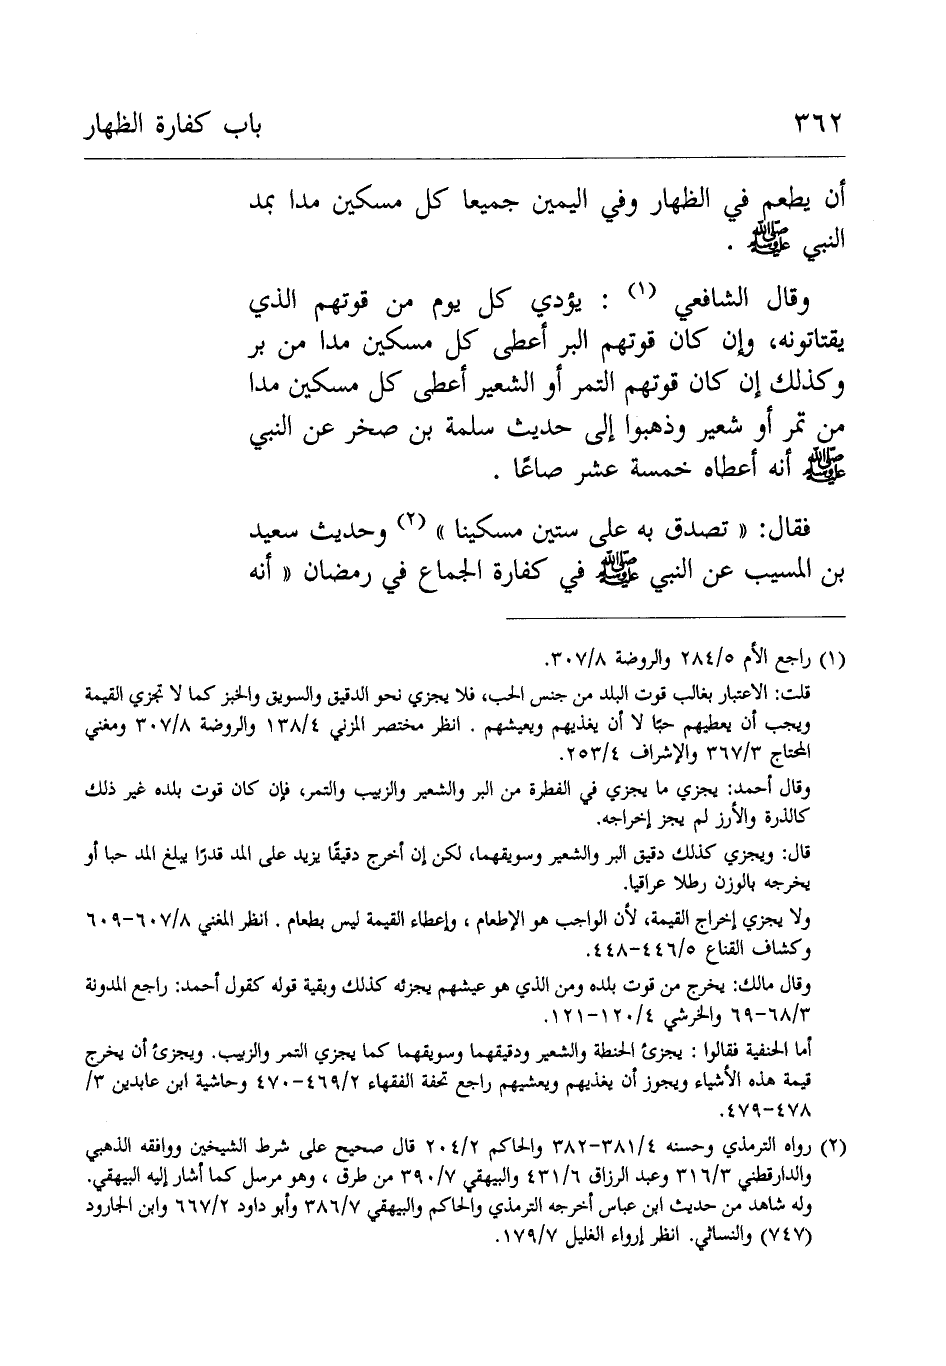 ٣٦٢
باب كفارة الظهار
أن يطعم في الظهار وفي اليمين جميعا كل مسكين مدا بمد
النبي ﷺ .
وقال الشافعي (١) : يؤدي كل يوم من قوتهم الذي
يقتاتونه، وإن كان قوتهم البر أعطى كل مسكين مدا من بر
وكذلك إن كان قوتهم التمر أو الشعير أعطى كل مسكين مدا
من تمر أو شعير وذهبوا إلى حديث سلمة بن صخر عن النبي
ﷺ أنه أعطاه خمسة عشر صاعًا .
فقال: « تصدق به على ستين مسكينا » (٢) وحديث سعيد
بن المسيب عن النبي ﷺ في كفارة الجماع في رمضان « أنه
(١) راجع الأم ٢٨٤/٥ والروضة ٣٠٧/٨.
قلت: الاعتبار بغالب قوت البلد من جنس الحب، فلا يجزي نحو الدقيق والسويق والخبز كما لا تجزي القيمة
ويجب أن يعطيهم حبًا لا أن يغذيهم ويعيشهم . انظر مختصر المزني ١٣٨/٤ والروضة ٣٠٧/٨ ومغني
المحتاج ٣٦٧/٣ والإشراف ٢٥٣/٤.
وقال أحمد: يجزي ما يجزي في الفطرة من البر والشعير والزبيب والتمر، فإن كان قوت بلده غير ذلك
كالذرة والأرز لم يجز إخراجه.
قال: ويجزي كذلك دقيق البر والشعير وسويقهما، لكن إن أخرج دقيقًا يزيد على المد قدرًا يبلغ المد حبا أو
يخرجه بالوزن رطلا عراقيا.
ولا يجزي إخراج القيمة، لأن الواجب هو الإطعام ، وإعطاء القيمة ليس بطعام . انظر المغني ٦٠٧/٨–٦٠٩
وكشاف القناع ٤٤٦/٥–٤٤٨.
وقال مالك: يخرج من قوت بلده ومن الذي هو عيشهم يجزئه كذلك وبقية قوله كقول أحمد: راجع المدونة
٦٨/٣–٦٩ والخرشي ١٢٠/٤–١٢١.
أما الحنفية فقالوا : يجزئ الحنطة والشعير ودقيقهما وسويقهما كما يجزي التمر والزبيب. ويجزئ أن يخرج
قيمة هذه الأشياء ويجوز أن يغذيهم ويعشيهم راجع تحفة الفقهاء ٤٦٩/٢–٤٧٠ وحاشية ابن عابدين ٣/
٤٧٨–٤٧٩.
(٢) رواه الترمذي وحسنه ٣٨١/٤–٣٨٢ والحاكم ٢٠٤/٢ قال صحيح على شرط الشيخين ووافقه الذهبي
والدارقطني ٣١٦/٣ وعبد الرزاق ٤٣١/٦ والبيهقي ٣٩٠/٧ من طرق ، وهو مرسل كما أشار إليه البيهقي.
وله شاهد من حديث ابن عباس أخرجه الترمذي والحاكم والبيهقي ٣٨٦/٧ وأبو داود ٦٦٧/٢ وابن الجارود
(٧٤٧) والنسائي. انظر إرواء الغليل ١٧٩/٧.